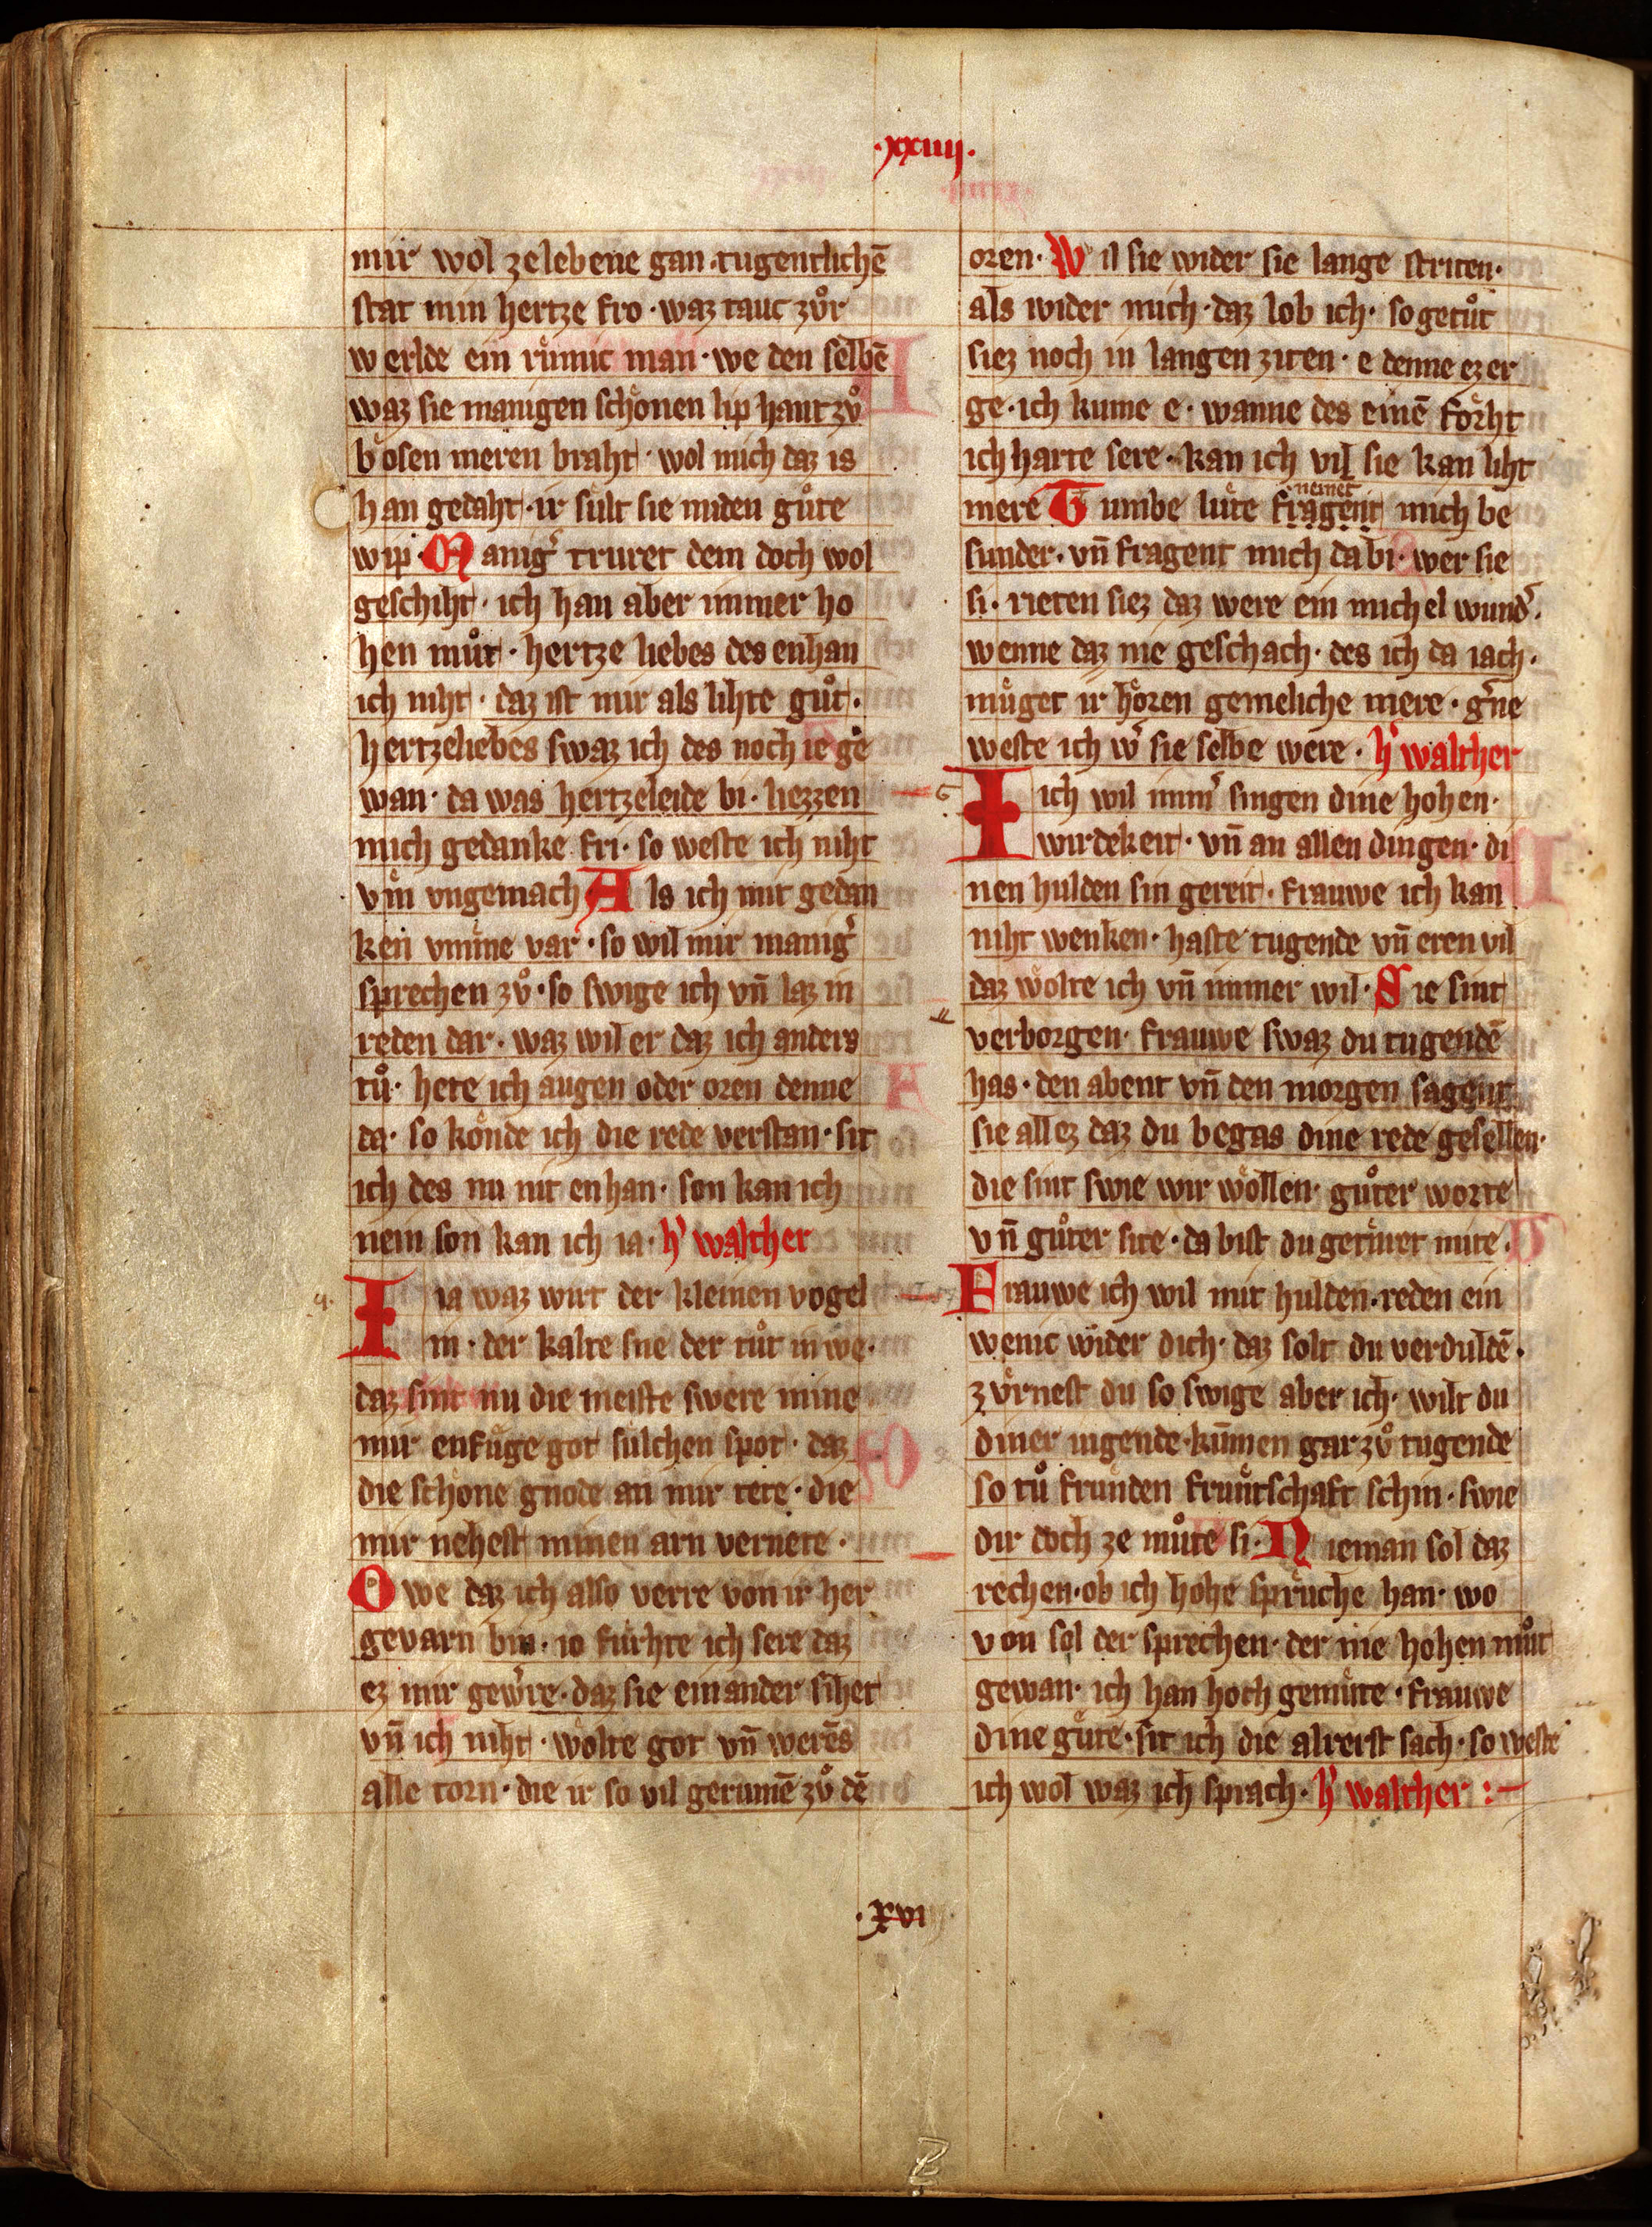 ·xxiiij·
mir wol ze lebene gan·tugentlichē
stat min hertze fro·waz tauc zůr
werlde ein rümic man·we den selbē
waz sie manigen schönen lip hant zů
bösen meren braht·wol mich daz is
han gedaht·ir sült sie miden güte
wip·Manig᷑ truret dem doch wol
geschiht·ich han aber immer ho
hen můt·hertze liebes des enhan
ich niht·daz ist mir als lihte gůt·
hertzeliebes swaz ich des noch ie ge
wan·da was hertzeleide bi·liezzen
mich gedanke fri·so weste ich niht
vm vngemach Als ich mit gedan
ken vmme var·so wil mir manig᷑
sprechen zů·so swige ich vn̄ laz in
reden dar·waz wil er daz ich anders
tů·hete ich augen oder oren denne
da·so könde ich die rede verstan·sit
ich des nu nit enhan·son kan ich
nein son kan ich ia·h᷑ walther
Iia waz wirt der kleinen vogel
in·der kalte sne der tůt in we·
daz sint nu die meiste swere mine
mir enfüge got sülchen spot·daz
die schöne gnode an mir tete·die
mir nehest minen arn vernete·
Owe daz ich also verre von ir her
gevarn bin·io fürhte ich sere daz
ez mir gew᷑re·daz sie einander sihet
vn̄ ich niht·wölte got vn̄ werēs
alle torn·die ir so vil gerunē zů dē
oren·Wil sie wider sie lange striten·
als wider mich·daz lob ich·so getůt
siez noch in langen ziten·e denne ez er
ge·ich kume e·wanne des einē förht
ich harte sere·kan ich vil sie kan liht
mere Tumbe lüte fragent nemet mich be
sunder·vn̄ fragent mich da bi·wer sie
si·rieten siez daz were ein michel wund᷑·
wenne daz nie geschach·des ich da iach·
müget ir hören gemeliche mere·g᷑ne
weste ich w᷑ sie selbe were·h᷑ walther
Iich wil imm᷑ singen dine hohen·
wirdekeit·vn̄ an allen dingen·di
nen hulden sin gereit·frauwe ich kan
niht wenken·haste tugende vn̄ eren vil
daz wölte ich vn̄ immer wil·Sie sint
verborgen·frauwe swaz du tugendē
has·den abent vn̄ den morgen sagent
sie allez daz du begas dine rede gesellen·
die sint swie wir wöllen·gůter worte
vn̄ gůter site·da bist du getiuret mite·
Frauwe ich wil mit hulden·reden ein
wenic wider dich·daz solt du verduldē·
zürnest du so swige aber ich·wilt du
diner iugende·kūmen gar zů tugende
so tů fründen früntschaft schin·swie
dir doch ze můte si·Nieman sol daz
rechen·ob ich hohe sprüche han·wo
von sol der sprechen·der nie hohen můt
gewan·ich han hoch gemüte·frauwe
dine güte·sit ich die alrerst sach·so weste
ich wol waz ich sprach·h᷑ walther :~
·xvi